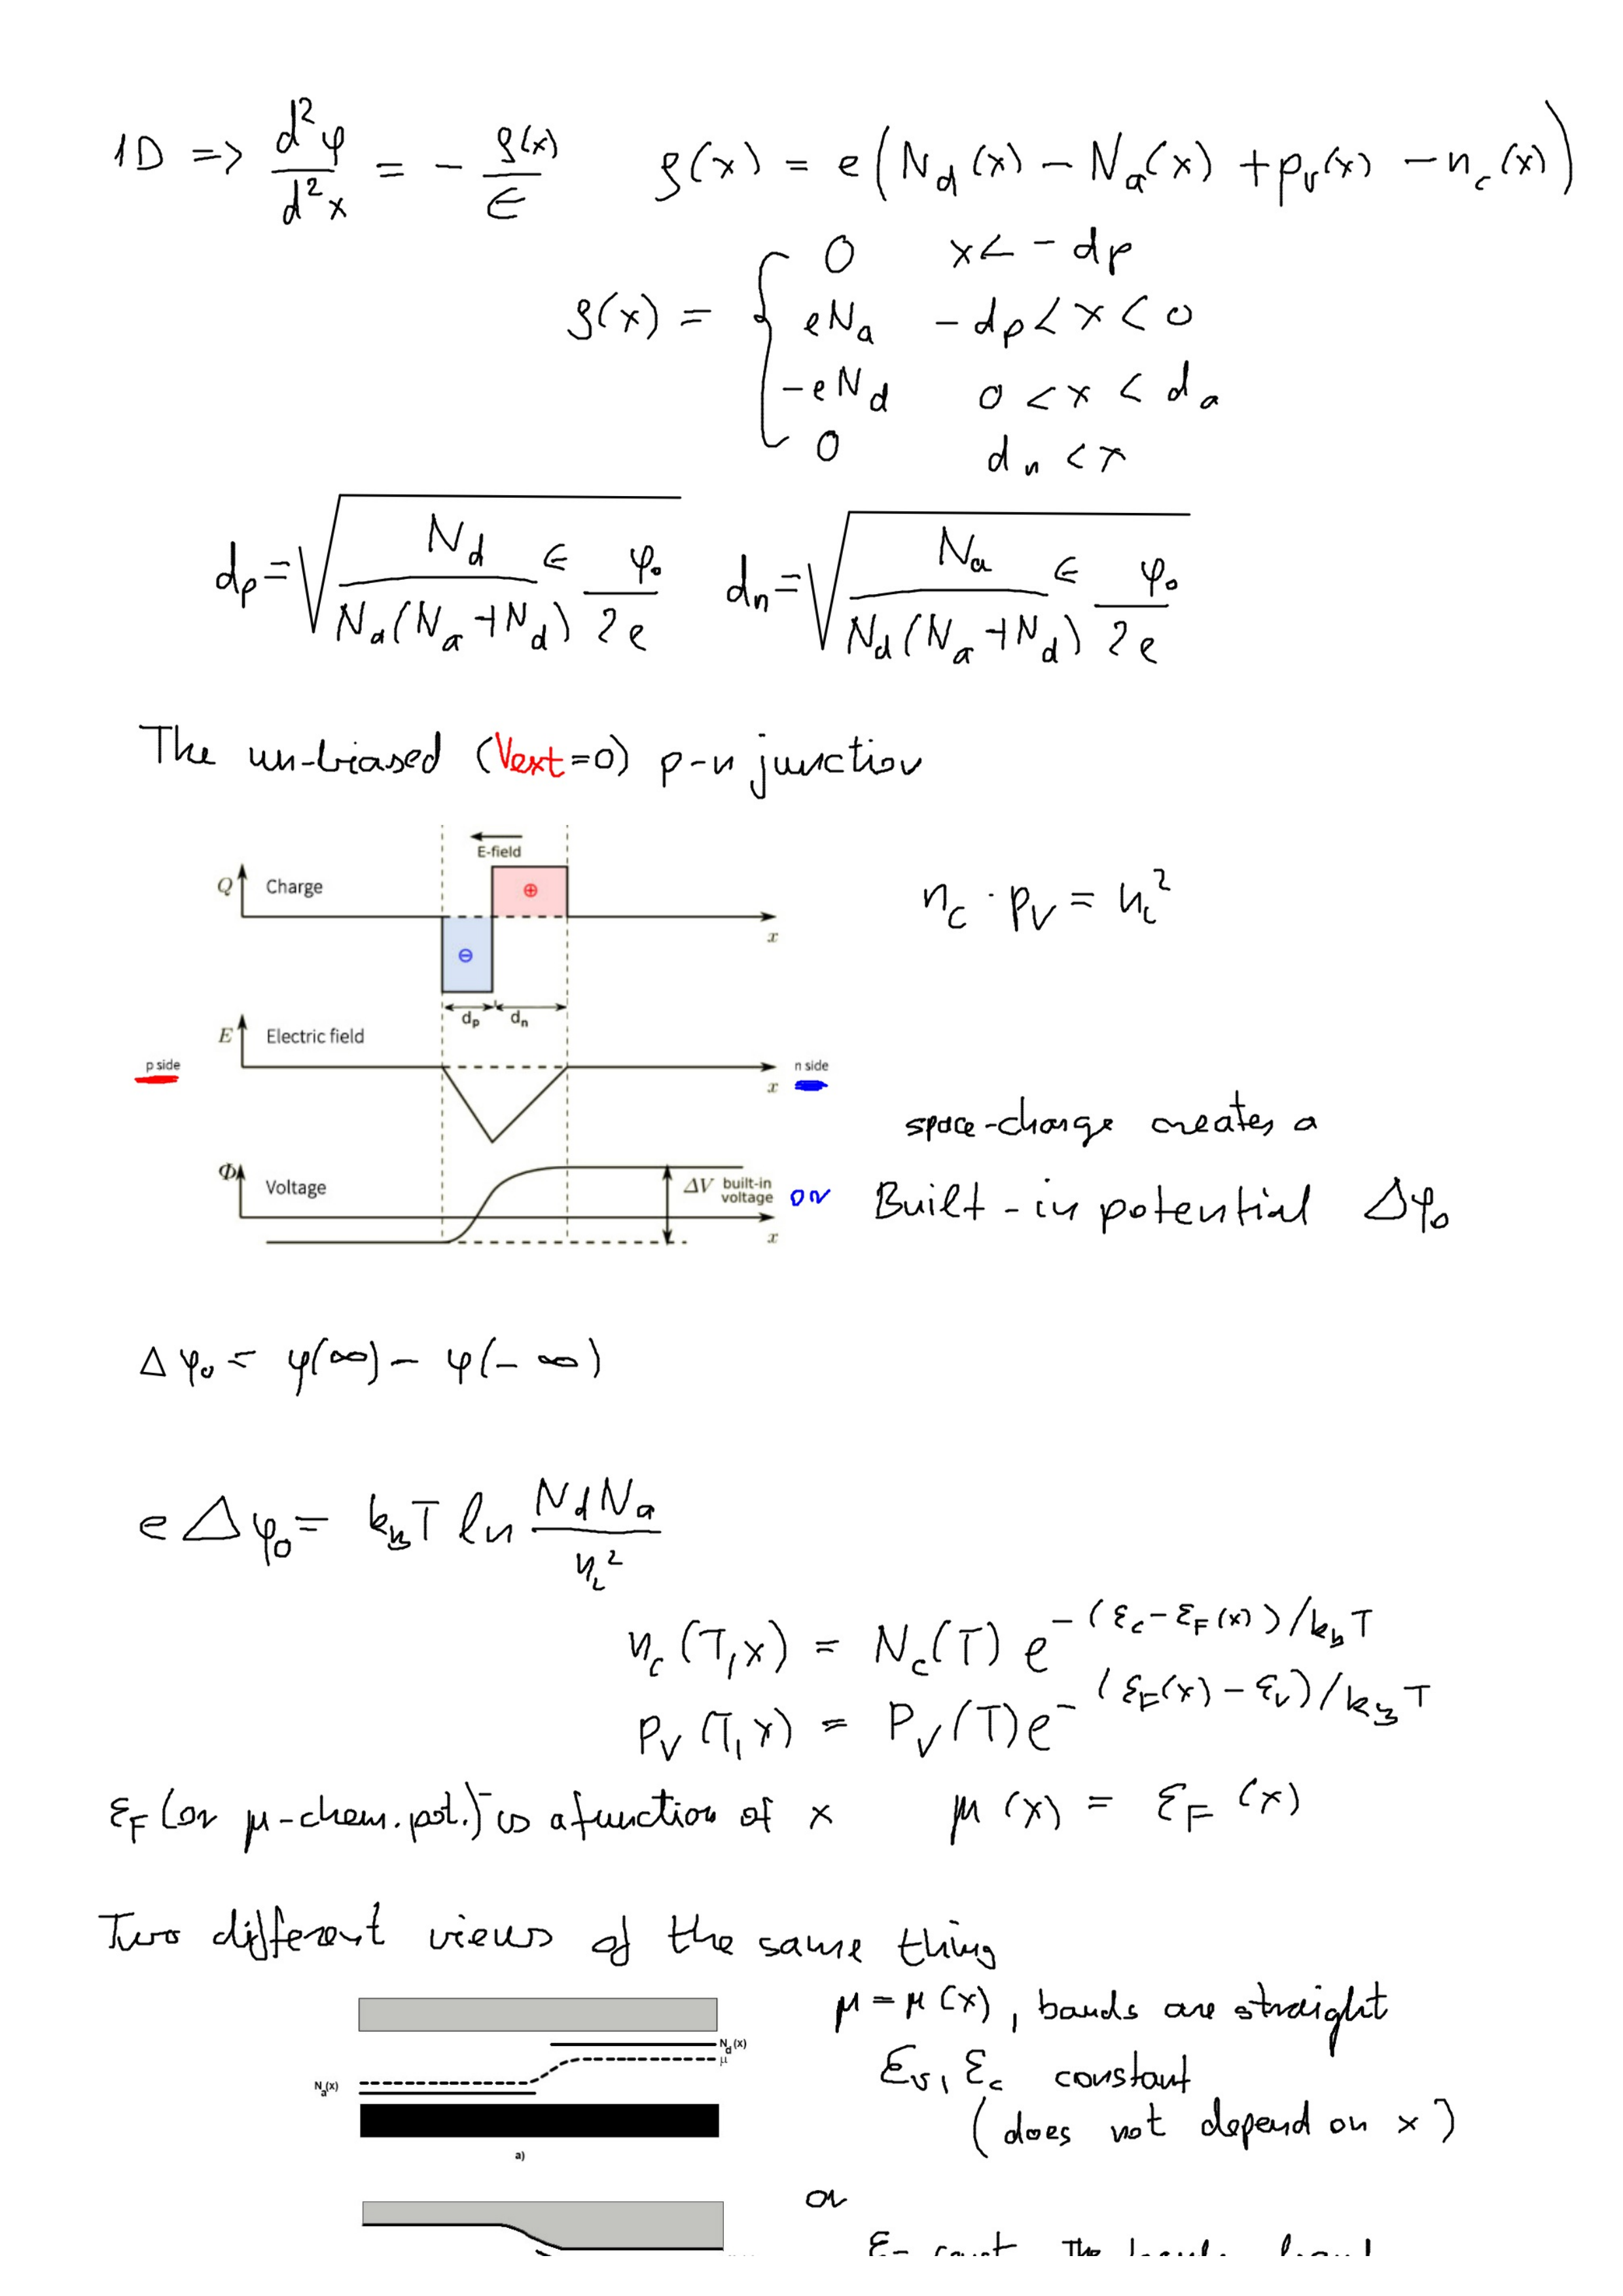 1D => d²φ/d²x = - ρ(x)/ϵ    ρ(x) = e(N_d(x) - N_a(x) + p_v(x) - n_c(x))
ρ(x) = { 0    x < - dp
eN_a    - dp < x < 0
-eN_d    0 < x < d_a
0    d_n < x
d_p = √(N_d/(N_a(N_a+N_d)) ϵ φ₀/2e)    d_n = √(N_a/(N_d(N_a+N_d)) ϵ φ₀/2e)
The un-biased (Vext=0) p-n junction
E-field
Q Charge
⊕
x
⊖
n_c · p_v = n_i²
d_p d_n
E Electric field
p side
n side
x
space-charge creates a
Φ Voltage
ΔV built-in
voltage
or Built-in potential Δφ₀
x
Δφ₀ = φ(∞) - φ(-∞)
eΔφ₀ = k_BT ln N_dN_a/n_i²
n_c(T,x) = N_c(T) e^-(ε_c-ε_F(x))/k_bT
P_v(T,x) = P_v(T) e^-(ε_F(x)-ε_v)/k_BT
ε_F (or μ-chem.pot.) is a function of x    μ(x) = ε_F(x)
Two different views of the same thing
μ = μ(x), bands are straight
N_d(x)
μ
N_a(x)
ε_v, ε_c constant
(does not depend on x)
a)
or